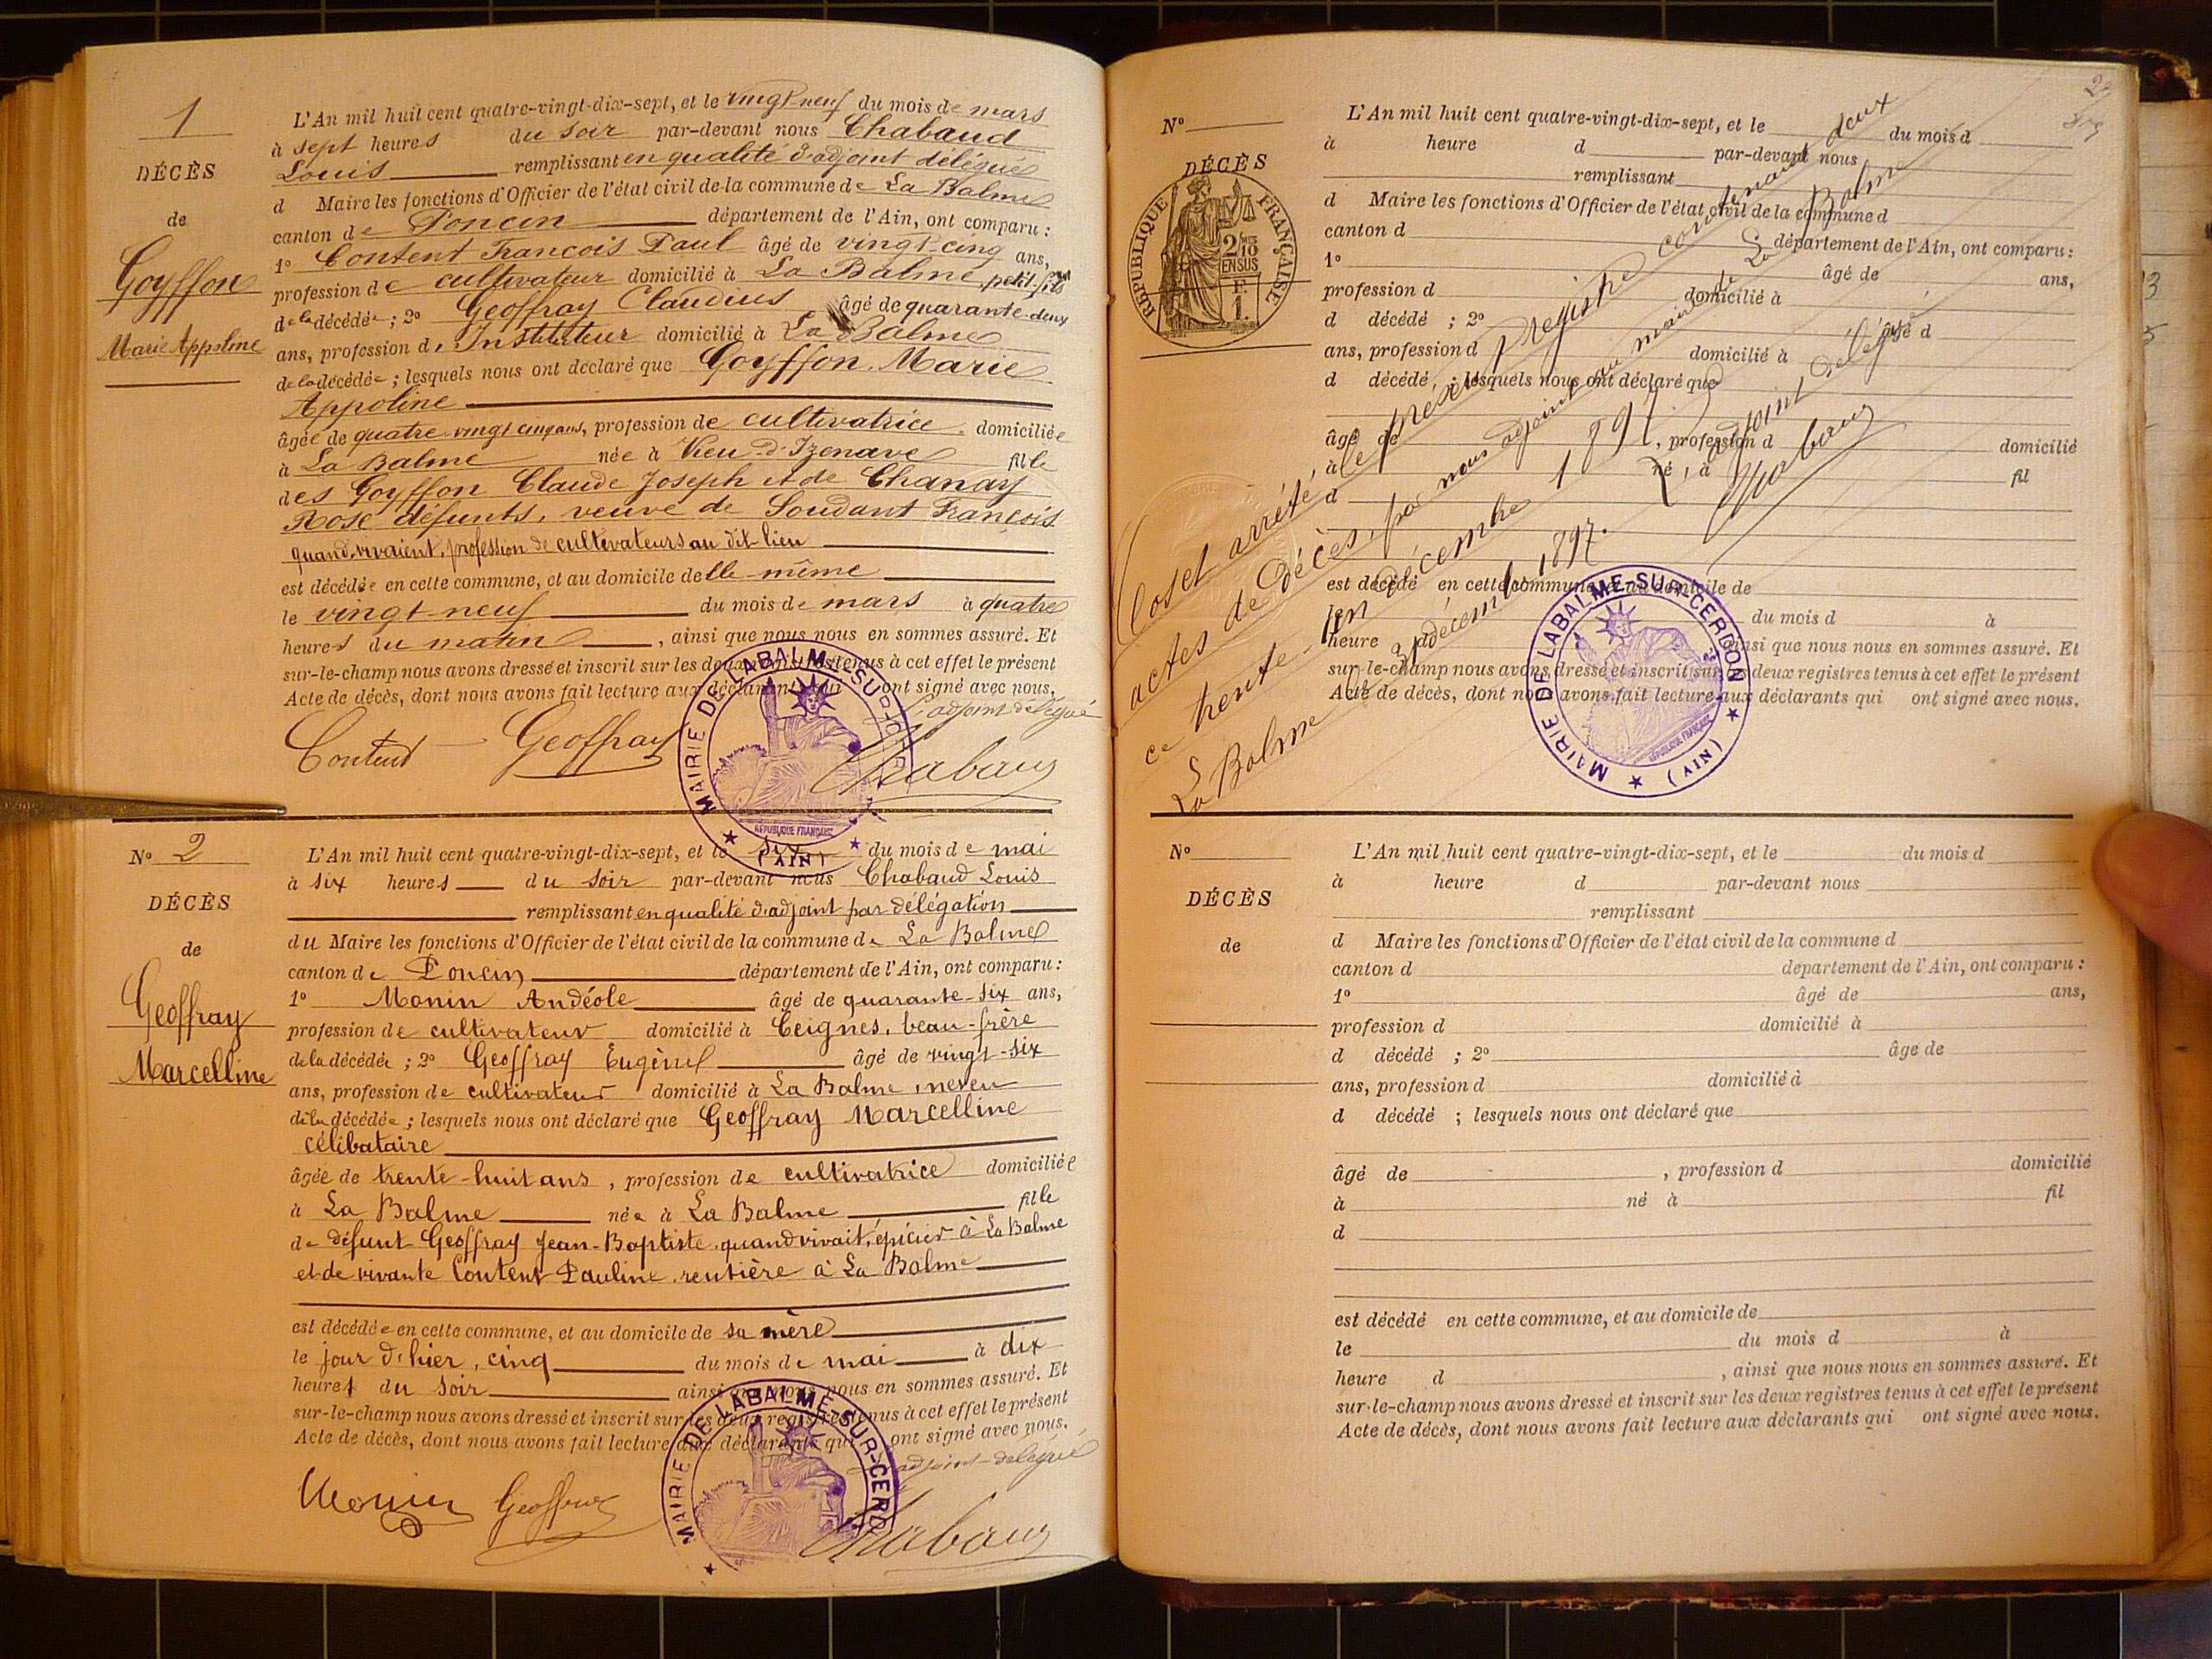 1
DÉCÈS
de
Goyffon
Marie Appoline
L'An mil huit cent quatre-vingt-dix-sept, et le vingt-neuf du mois de mars
à sept heures du soir par-devant nous Chabaud
Louis remplissant en qualité d'adjoint délégué
d Maire les fonctions d'Officier de l'état civil de la commune de La Balme
canton de Poncin département de l'Ain, ont comparu :
1° Content François Paul âgé de vingt-cinq ans,
profession de cultivateur domicilié à La Balme, petit-fils
de la décédée ; 2° Geoffray Claudius âgé de quarante-deux
ans, profession d'Instituteur domicilié à La Balme
de la décédée ; lesquels nous ont déclaré que Goyffon Marie
Appoline
âgée de quatre-vingt cinq ans, profession de cultivatrice domiciliée
à La Balme née à Vieu-d'Izenave fille
des Goyffon Claude Joseph et de Chanay
Rose défunts, veuve de Soudant François
quand vivaient, profession de cultivateurs au dit-lieu
est décédée en cette commune, et au domicile d'elle même
le vingt-neuf du mois de mars à quatre
heures du matin, ainsi que nous nous en sommes assuré. Et
sur-le-champ nous avons dressé et inscrit sur les deux registres tenus à cet effet le présent
Acte de décès, dont nous avons fait lecture aux déclarants qui ont signé avec nous.
L'adjoint délégué
Content Geoffray Chabaud
MAIRIE DE LABALME-SUR-CERDON
RÉPUBLIQUE FRANÇAISE
(AIN)
N° 2
DÉCÈS
de
Geoffray
Marcelline
L'An mil huit cent quatre-vingt-dix-sept, et le six du mois de mai
à six heures du soir par-devant nous Chabaud Louis
remplissant en qualité d'adjoint par délégation
du Maire les fonctions d'Officier de l'état civil de la commune de La Balme
canton de Poncin département de l'Ain, ont comparu :
1° Monin Andéole âgé de quarante-six ans,
profession de cultivateur domicilié à Ceignes, beau-frère
de la décédée ; 2° Geoffray Eugène âgé de vingt-six
ans, profession de cultivateur domicilié à La Balme, neveu
de la décédée ; lesquels nous ont déclaré que Geoffray Marcelline
célibataire
âgée de trente-huit ans, profession de cultivatrice domiciliée
à La Balme née à La Balme fille
de défunt Geoffray Jean-Baptiste, quand vivait, épicier à La Balme
et de vivante Content Pauline, rentière à La Balme
est décédée en cette commune, et au domicile de sa mère
le jour d'hier, cinq du mois de mai à dix
heures du soir ainsi que nous nous en sommes assuré. Et
sur-le-champ nous avons dressé et inscrit sur les deux registres tenus à cet effet le présent
Acte de décès, dont nous avons fait lecture aux déclarants qui ont signé avec nous.
L'adjoint-délégué
Monin Geoffray Chabaud
MAIRIE DE LABALME-SUR-CERDON
N°
DÉCÈS
RÉPUBLIQUE FRANÇAISE
2/10
EN SUS
F.
1.
L'An mil huit cent quatre-vingt-dix-sept, et le du mois d
à heure d par-devant nous
remplissant
d Maire les fonctions d'Officier de l'état civil de la commune d
canton d département de l'Ain, ont comparu :
1° âgé de ans,
profession d domicilié à
d décédé ; 2° âgé d
ans, profession d domicilié à
d décédé, ; lesquels nous ont déclaré que
âgé de , profession d domicilié
à né, à fil
d
est décédé en cette commune, et au domicile de
le du mois d à
heure ainsi que nous nous en sommes assuré. Et
sur-le-champ nous avons dressé et inscrit sur les deux registres tenus à cet effet le présent
Acte de décès, dont nous avons fait lecture aux déclarants qui ont signé avec nous.
Clos et arrêté, le présent registre contenant deux
actes de décès, par nous adjoint au maire de La Balme
ce trente-un décembre 1897.
La Balme 31 décembre 1897.
L'adjoint délégué
Chabaud
MAIRIE DE LABALME-SUR-CERDON
RÉPUBLIQUE FRANÇAISE
(AIN)
N°
DÉCÈS
de
L'An mil huit cent quatre-vingt-dix-sept, et le du mois d
à heure d par-devant nous
remplissant
d Maire les fonctions d'Officier de l'état civil de la commune d
canton d département de l'Ain, ont comparu :
1° âgé de ans,
profession d domicilié à
d décédé ; 2° âge de
ans, profession d domicilié à
d décédé ; lesquels nous ont déclaré que
âgé de , profession d domicilié
à né à fil
d
est décédé en cette commune, et au domicile de
le du mois d à
heure d , ainsi que nous nous en sommes assuré. Et
sur-le-champ nous avons dressé et inscrit sur les deux registres tenus à cet effet le présent
Acte de décès, dont nous avons fait lecture aux déclarants qui ont signé avec nous.